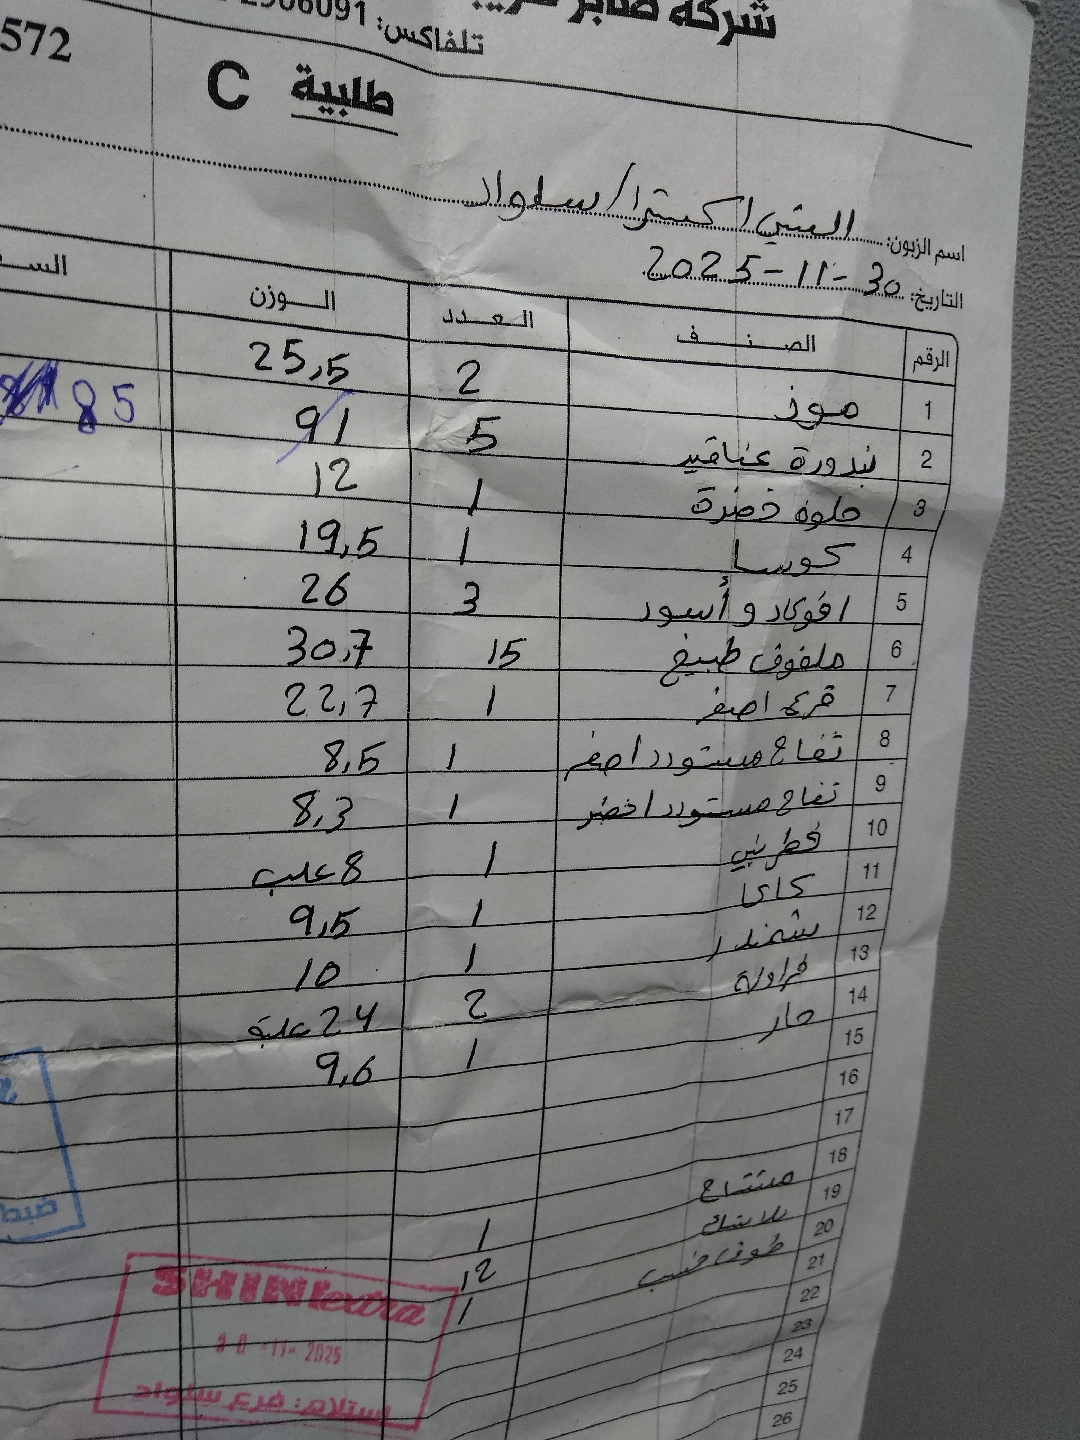 شركة صابر
تلفاكس: 2906091
572
طلبية C
اسم الزبون: الشني اكسترا / سلواد
التاريخ: 30-11-2025
الرقم الصنف العدد الوزن السـ
1 موز 2 25,5
2 بندورة عناقيد 5 91 85
3 حلوة خضرة 1 12
4 كوسا 1 19,5
5 افوكادو أسود 3 26
6 ملفوف طبيخ 15 30,7
7 قرع اصفر 1 22,7
8 تفاح مستورد اصفر 1 8,5
9 تفاح مستورد اخضر 1 8,3
10 فطر بني 1 8 علب
11 كاكا 1 9,5
12 شمندر 1 10
13 فراولة 2 24 علبة
14 حار 1 9,6
15
16
17
18
19 مشتاح 1
20 بلاستك 12
21 طوف خشب 1
22
23
24
25
26
SHINI extra
30-11-2025
استلام: فرع سلواد
ضبط